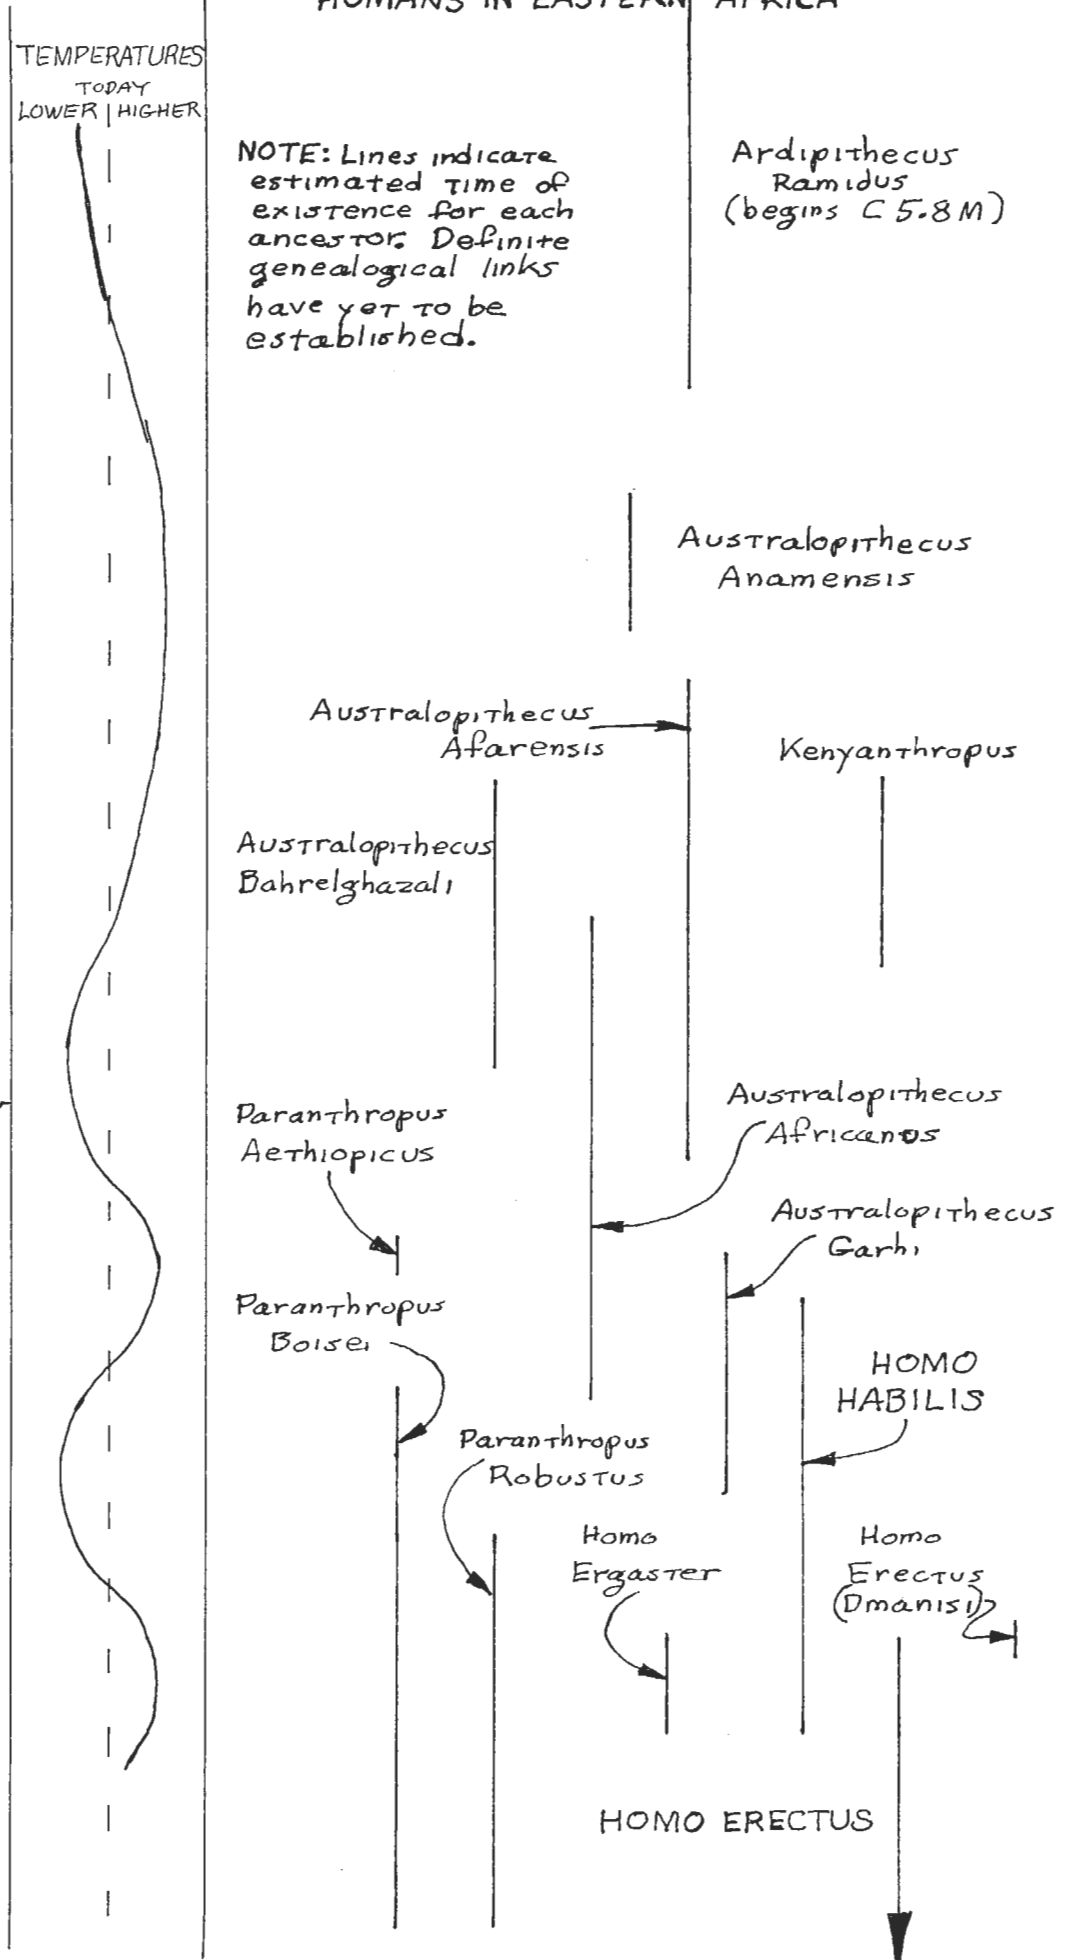 HUMANS IN EASTERN AFRICA
TEMPERATURES
TODAY
LOWER | HIGHER
NOTE: Lines indicate
estimated time of
existence for each
ancestor. Definite
genealogical links
have yet to be
established.
Ardipithecus
Ramidus
(begins C 5.8M)
Australopithecus
Anamensis
Australopithecus
Afarensis
Kenyanthropus
Australopithecus
Bahrelghazali
Paranthropus
Aethiopicus
Australopithecus
Africanus
Australopithecus
Garhi
Paranthropus
Boisei
HOMO
HABILIS
Paranthropus
Robustus
Homo
Ergaster
Homo
Erectus
(Dmanisi)
HOMO ERECTUS